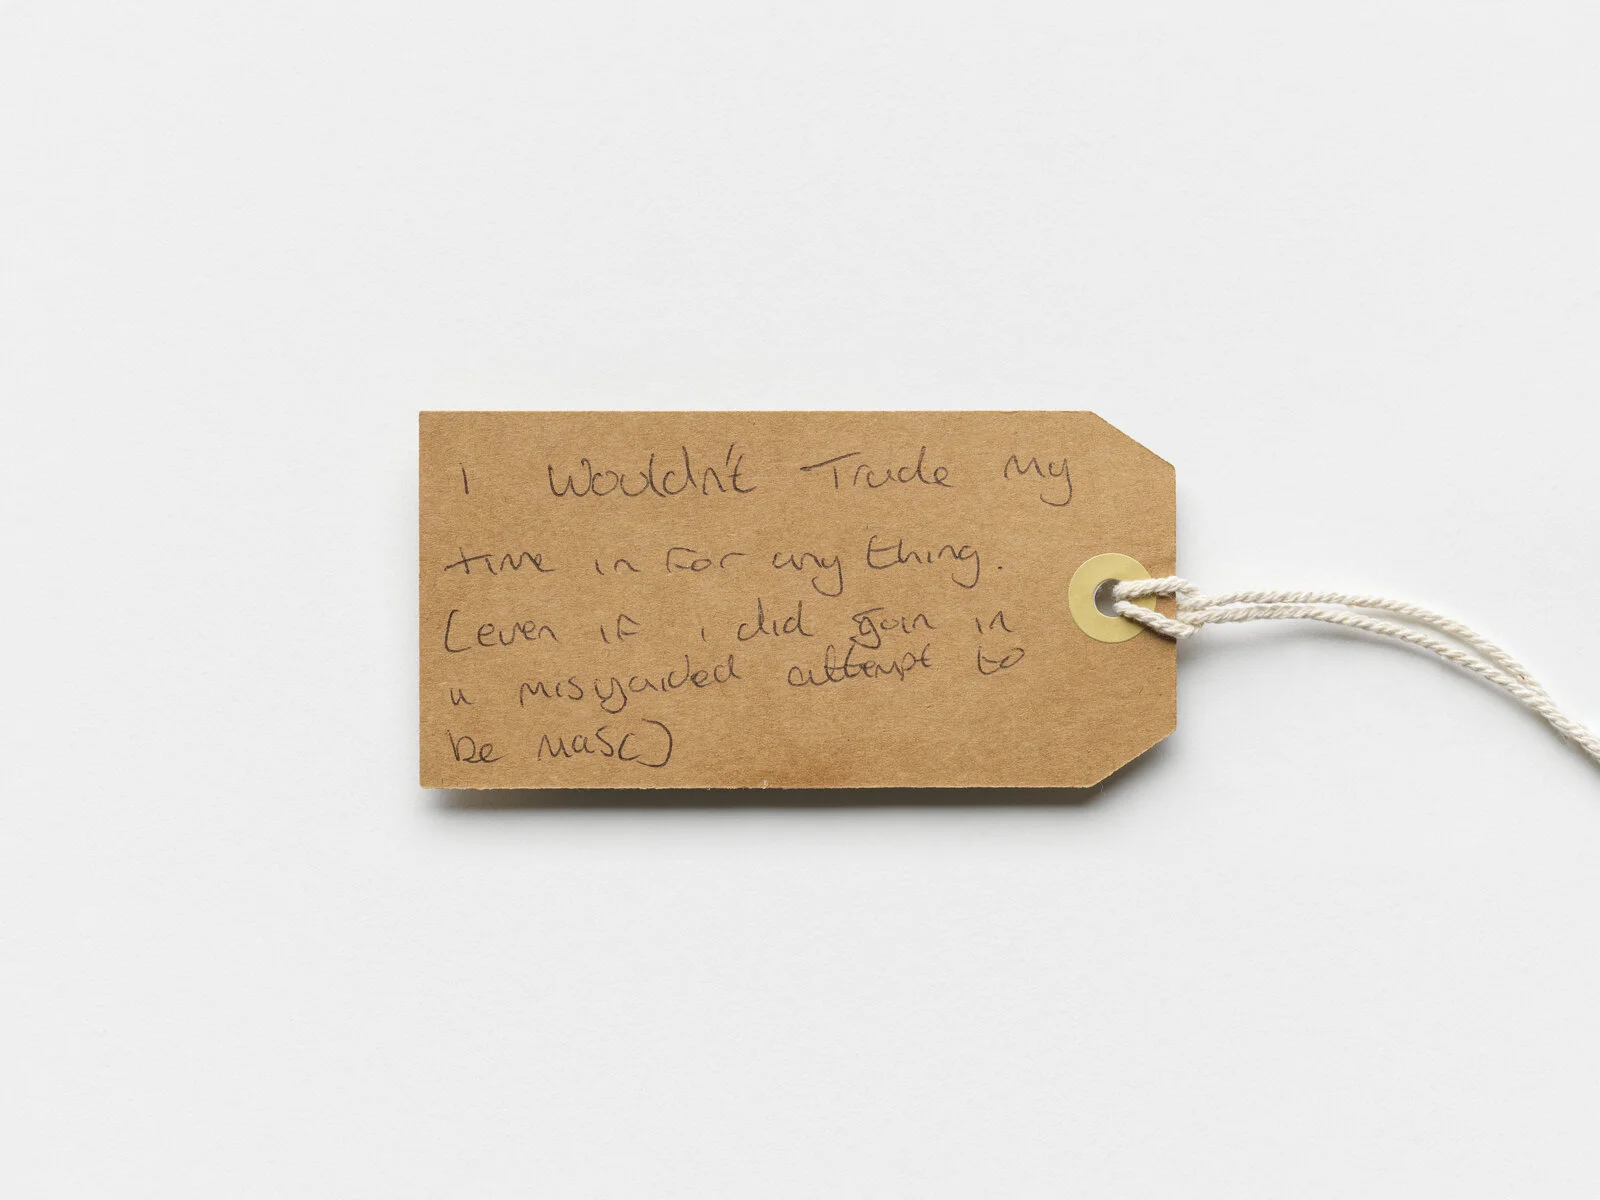 I Wouldn't Trade my
time in for anything.
(even if i did join in
a misguided attempt to
be masc)